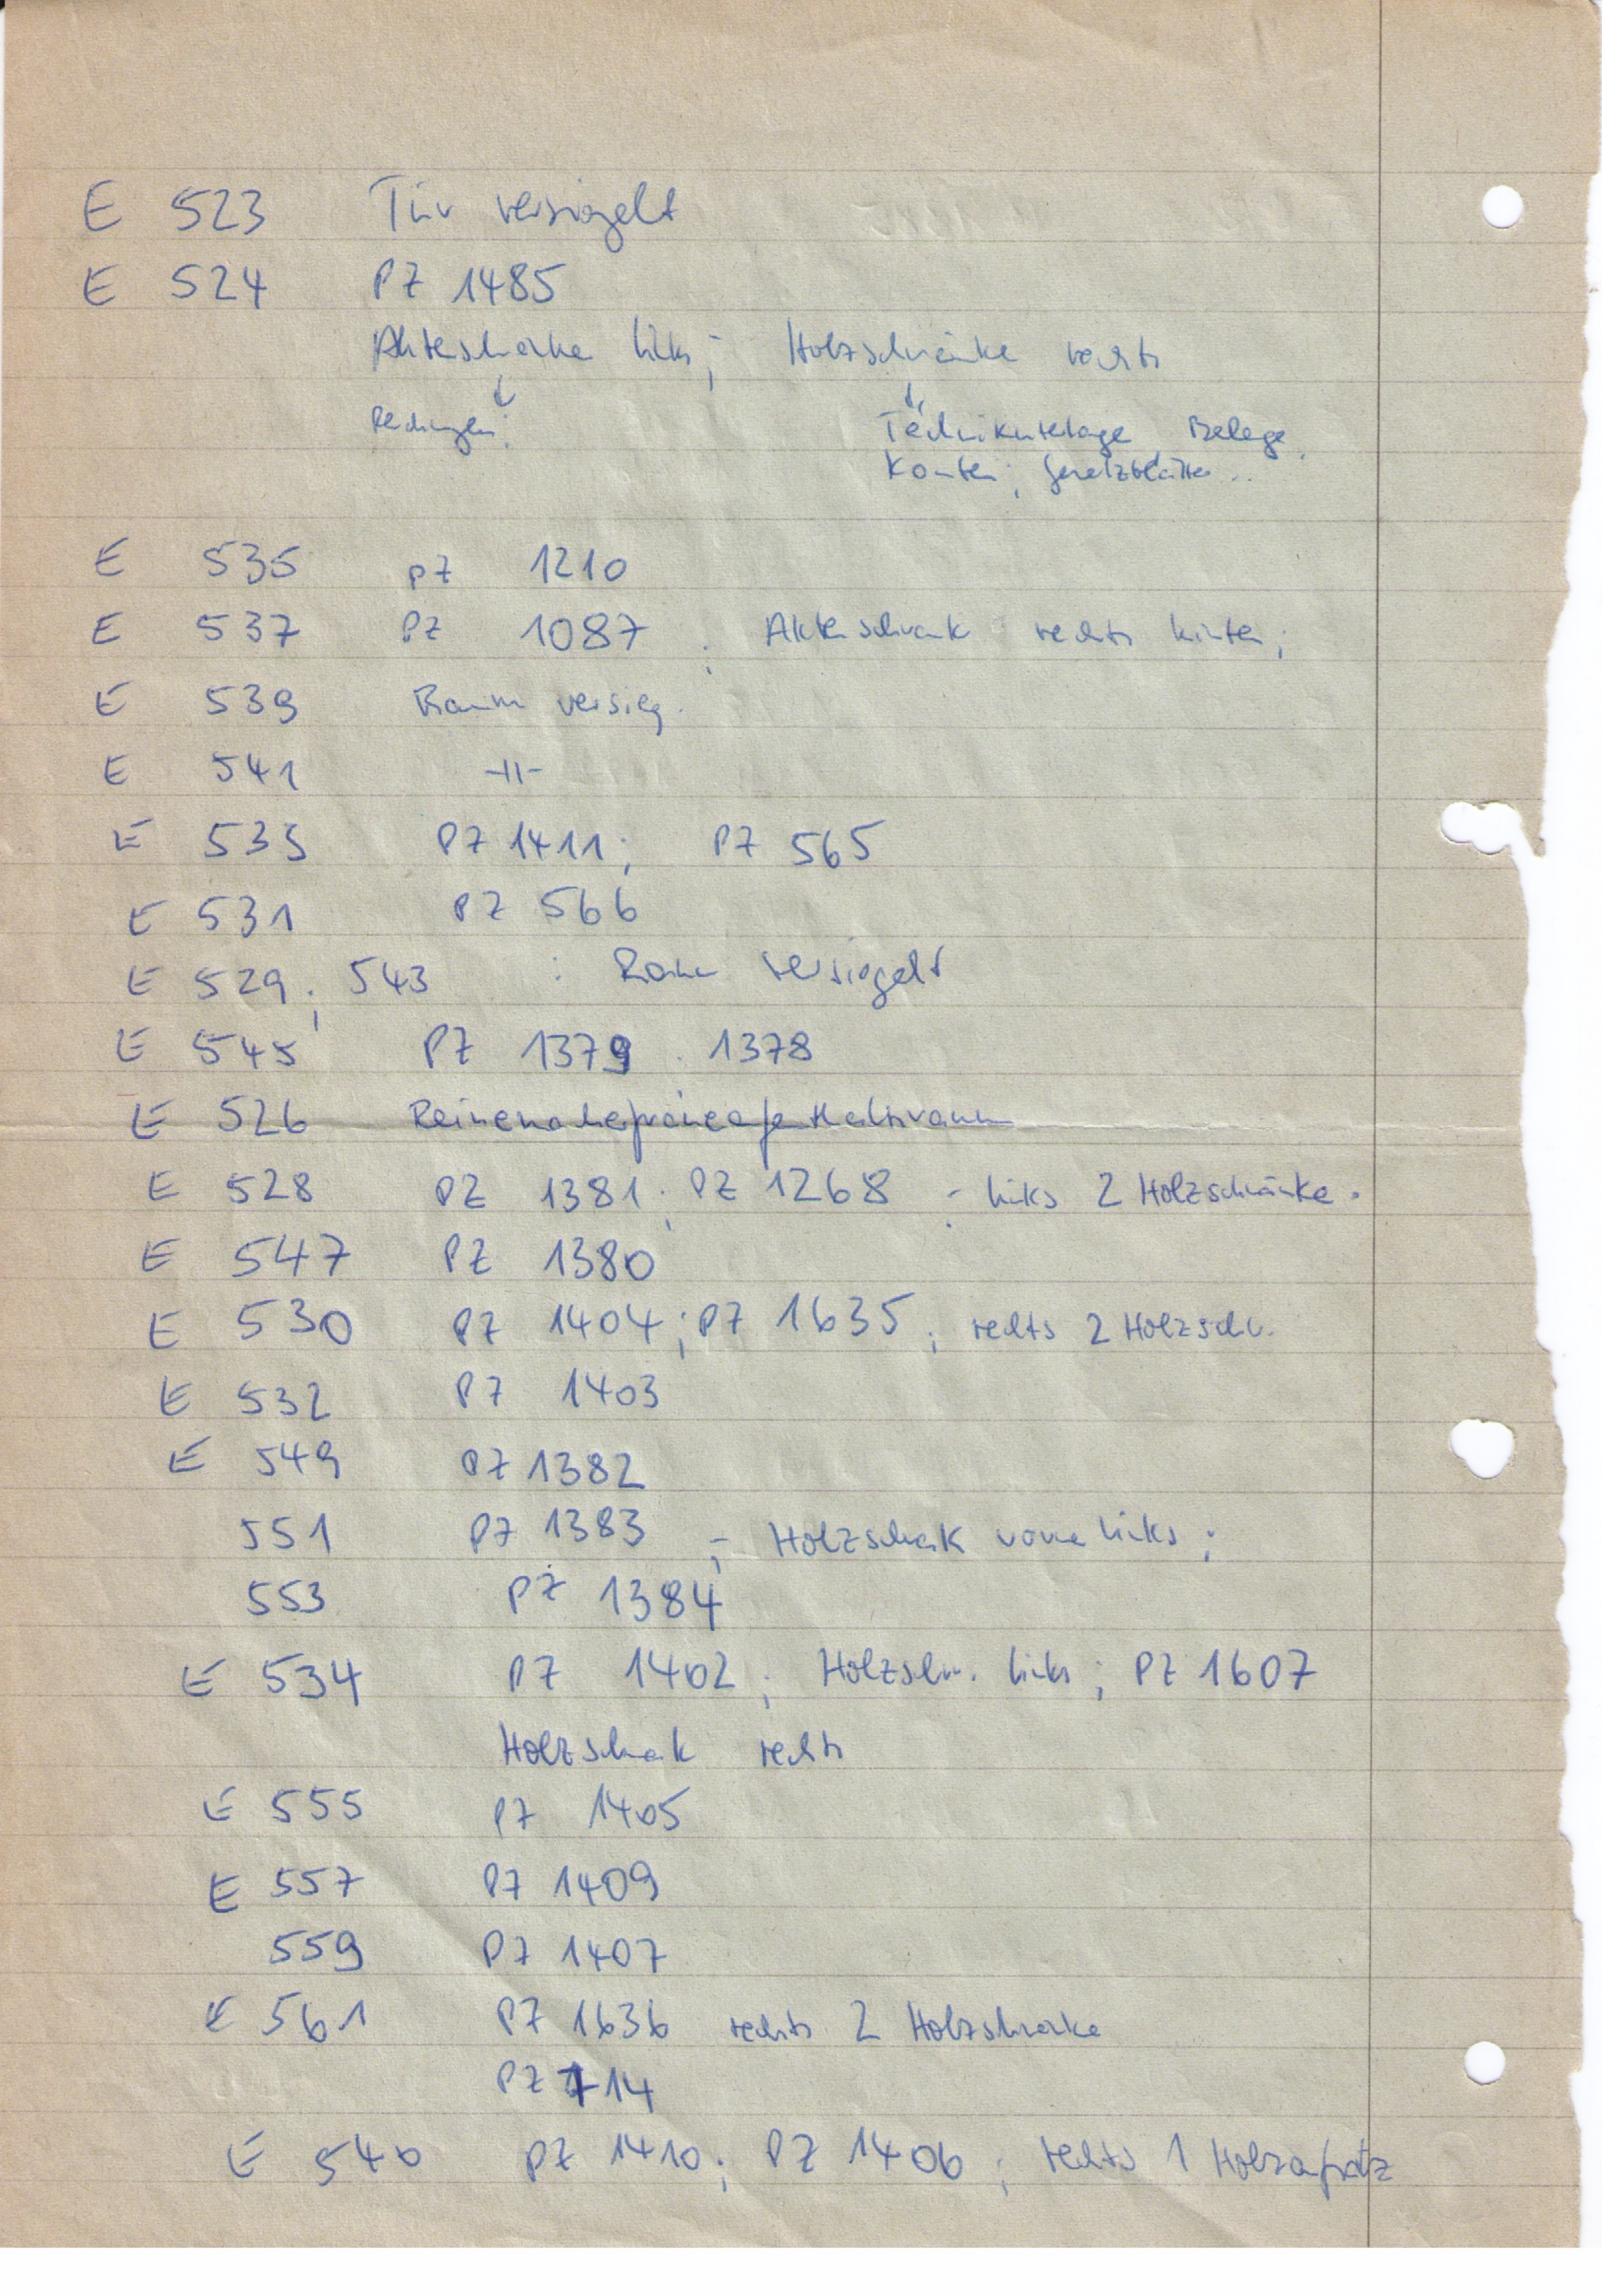 E 523 Tür versiegelt
E 524 PZ 1485
Aktenschränke links; Holzschränke rechts
Rechnungen; Technikunterlagen Belege,
Konten; Gesetzblätter..
E 535 PZ 1210
E 537 PZ 1087; Aktenschrank rechts hinten;
E 539 Raum versieg.
E 541 -II-
E 533 PZ 1411; PZ 565
E 531 PZ 566
E 529; 543 : Raum versiegelt
E 545 PZ 1379. 1378
E 526 Reinemachefrauenaufenthaltsraum
E 528 PZ 1381; PZ 1268; links 2 Holzschränke.
E 547 PZ 1380
E 530 PZ 1404; PZ 1635; rechts 2 Holzschr.
E 532 PZ 1403
E 549 PZ 1382
551 PZ 1383; Holzschrank vorne links;
553 PZ 1384
E 534 PZ 1402; Holzschr. links; PZ 1607
Holzschrank rechts
E 555 PZ 1405
E 557 PZ 1409
559 PZ 1407
E 561 PZ 1636 rechts 2 Holzschränke
PZ 714
E 540 PZ 1410; PZ 1406; rechts 1 Holzaufsatz